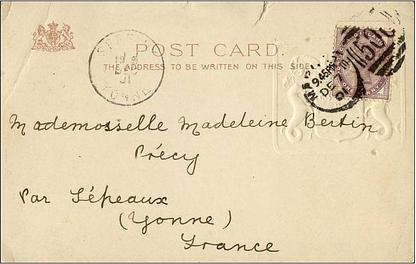 POST CARD.
THE ADDRESS TO BE WRITTEN ON THIS SIDE
YONNE
9.45PM
DE
Mademosselle Madeleine Bertin
Précy
Par Sépeaux
(Yonne)
France